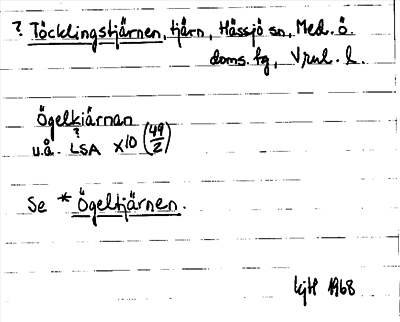 ? Töcklingstjärnen, tjärn, Hässjö sn, Med. ö.
doms. fg, Vrnl. l.
Ögelkiärnan
?
u.å. LSA X10 (49/2)
Se * Ögeltjärnen.
KjH 1968